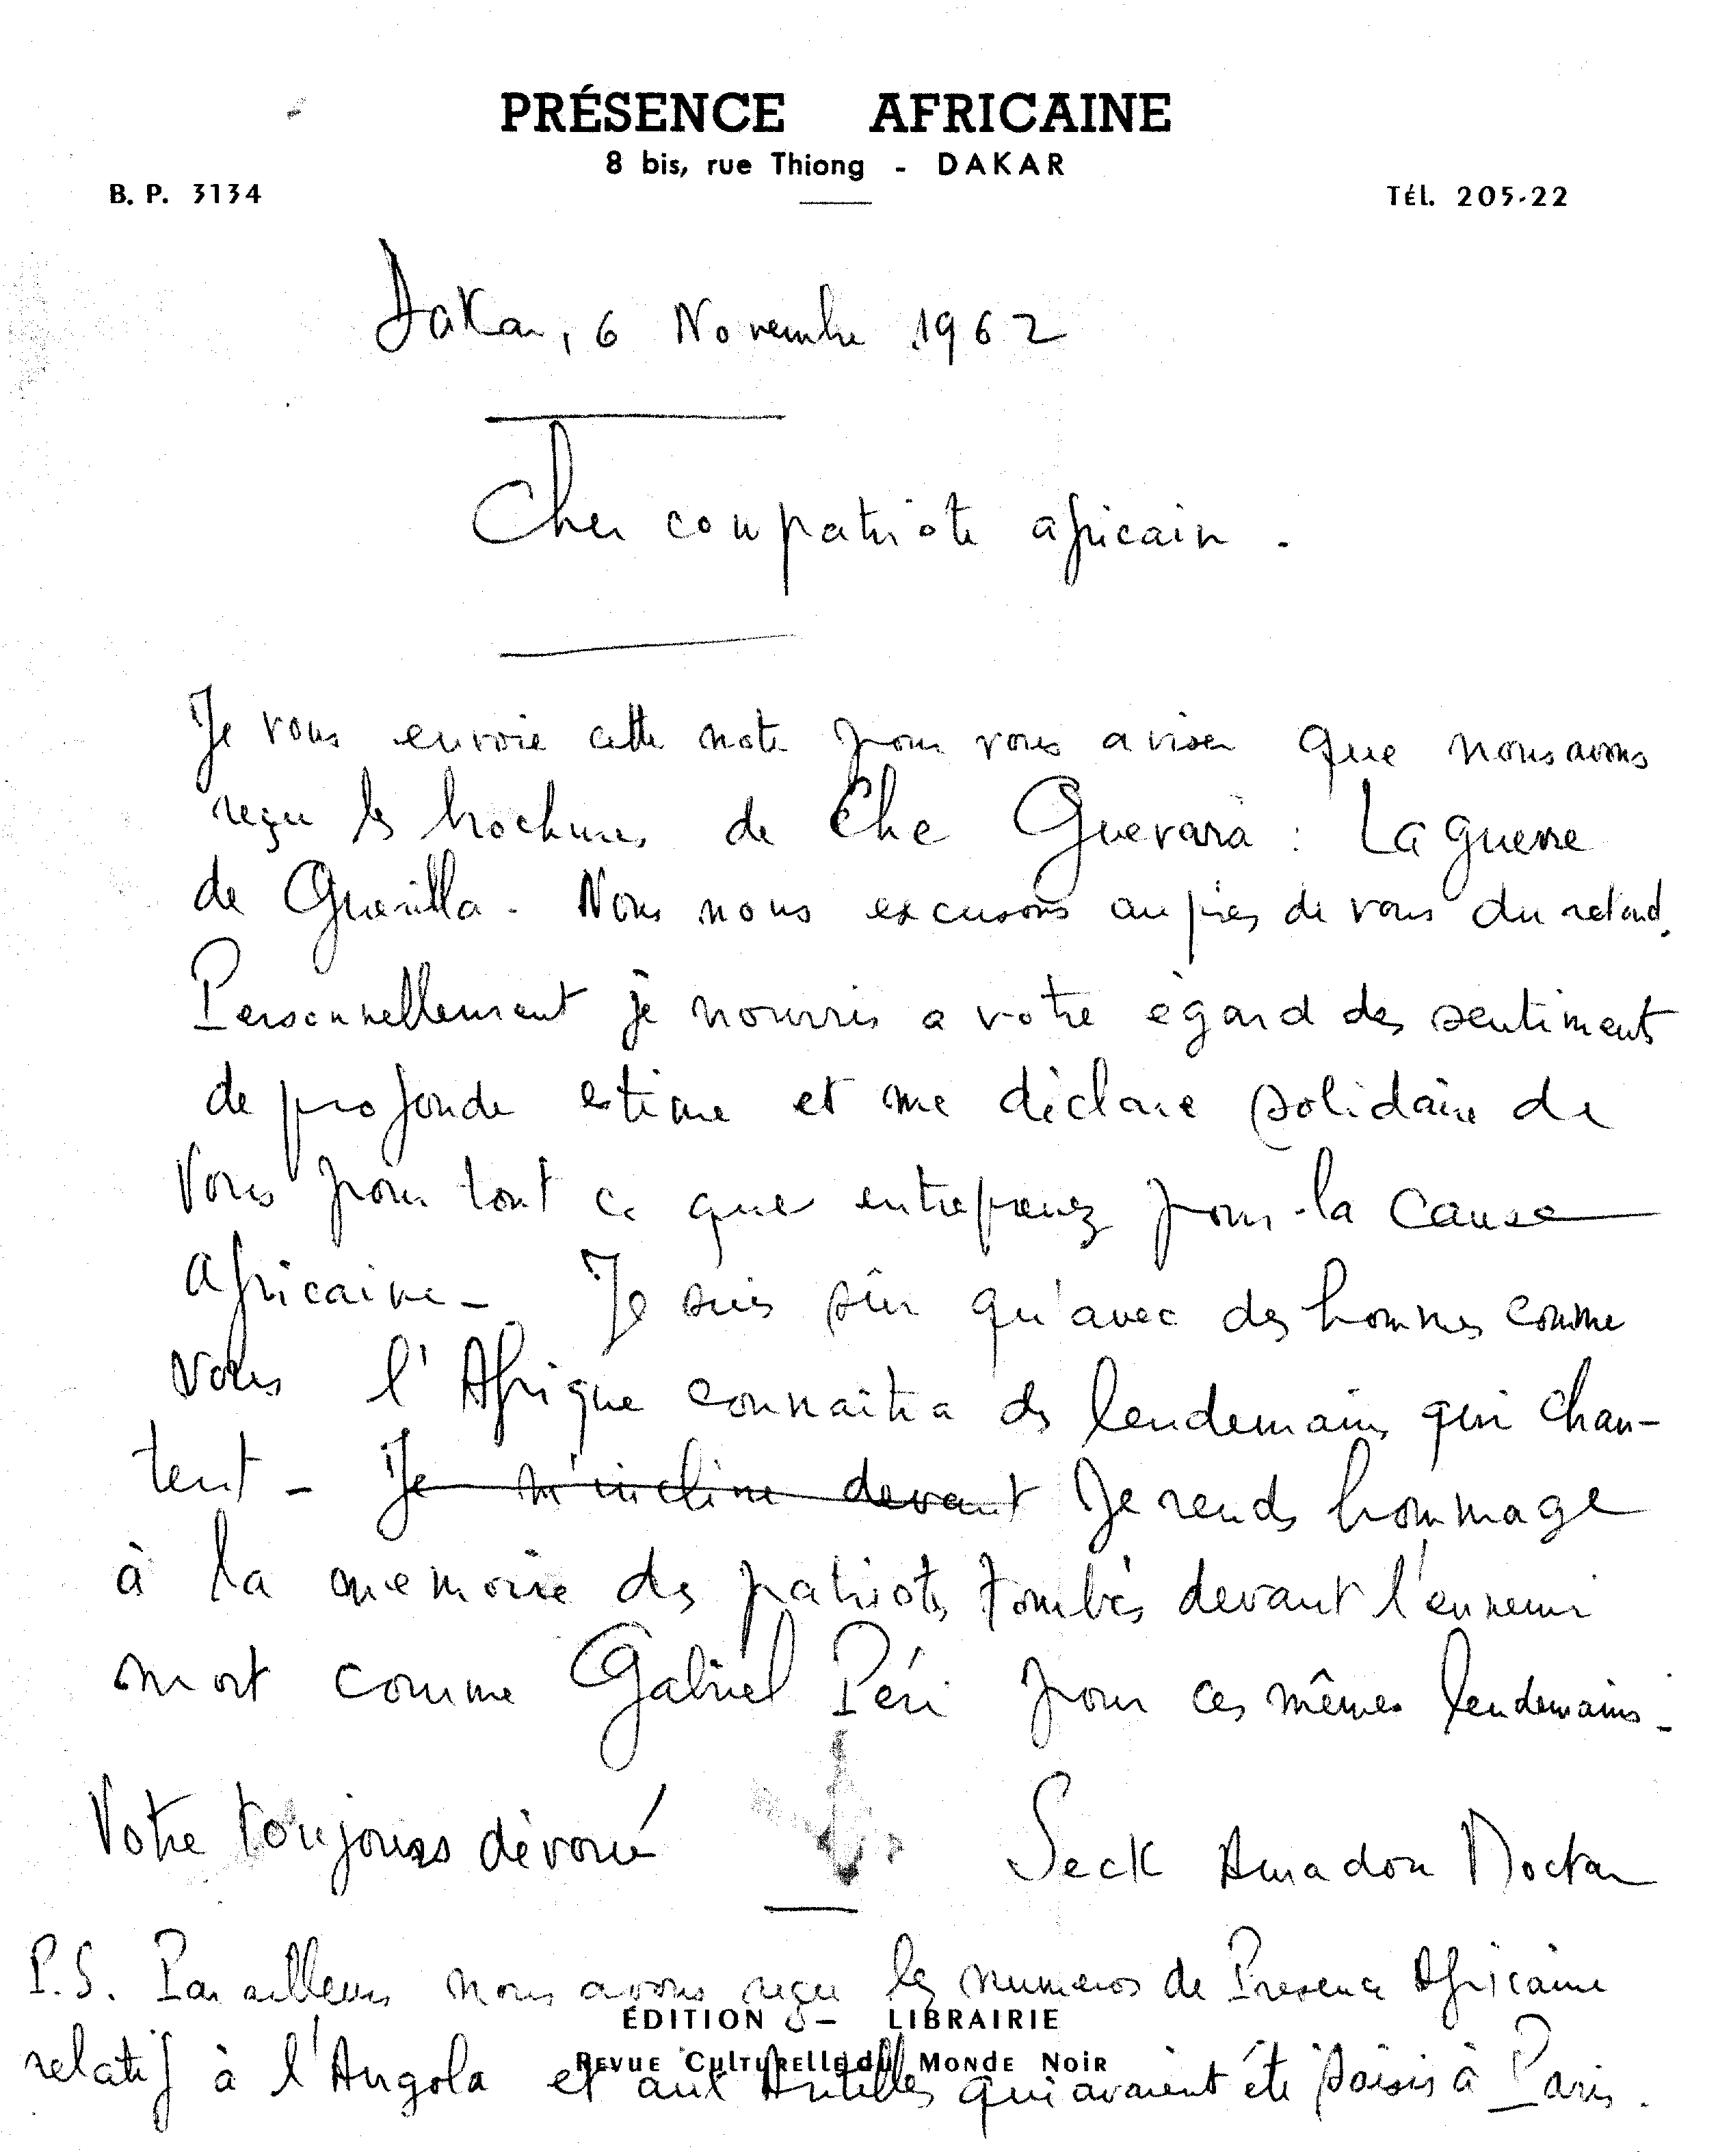 PRÉSENCE AFRICAINE
8 bis, rue Thiong - DAKAR
B. P. 3134
Tél. 205-22
Dakar, 6 Novembre 1962
Cher compatriote africain.
Je vous envoie cette note pour vous aviser que nous avons
reçu les brochures de Che Guevara : La guerre
de Guerilla. Nous nous excusons auprès de vous du retard.
Personnellement je nourris a votre égard des sentiments
de profonde estime et me déclare solidaire de
vous pour tout ce que entreprenez pour la cause
africaine - Je suis sûr qu'avec des hommes comme
vous l'Afrique connaitra des lendemains qui chan-
tent - Je m'incline devant Je rends hommage
à la memoire des patriotes tombés devant l'ennemi
mort comme Gabriel Péri pour ces mêmes lendemains -
Votre toujours dévoué
Seck Amadou Moctar
P.S. Par ailleurs nous avons reçu les numeros de Presence Africaine
relatif à l'Angola et aux Antilles qui avaient été saisis à Paris.
ÉDITION - LIBRAIRIE
REVUE CULTURELLE du MONDE NOIR